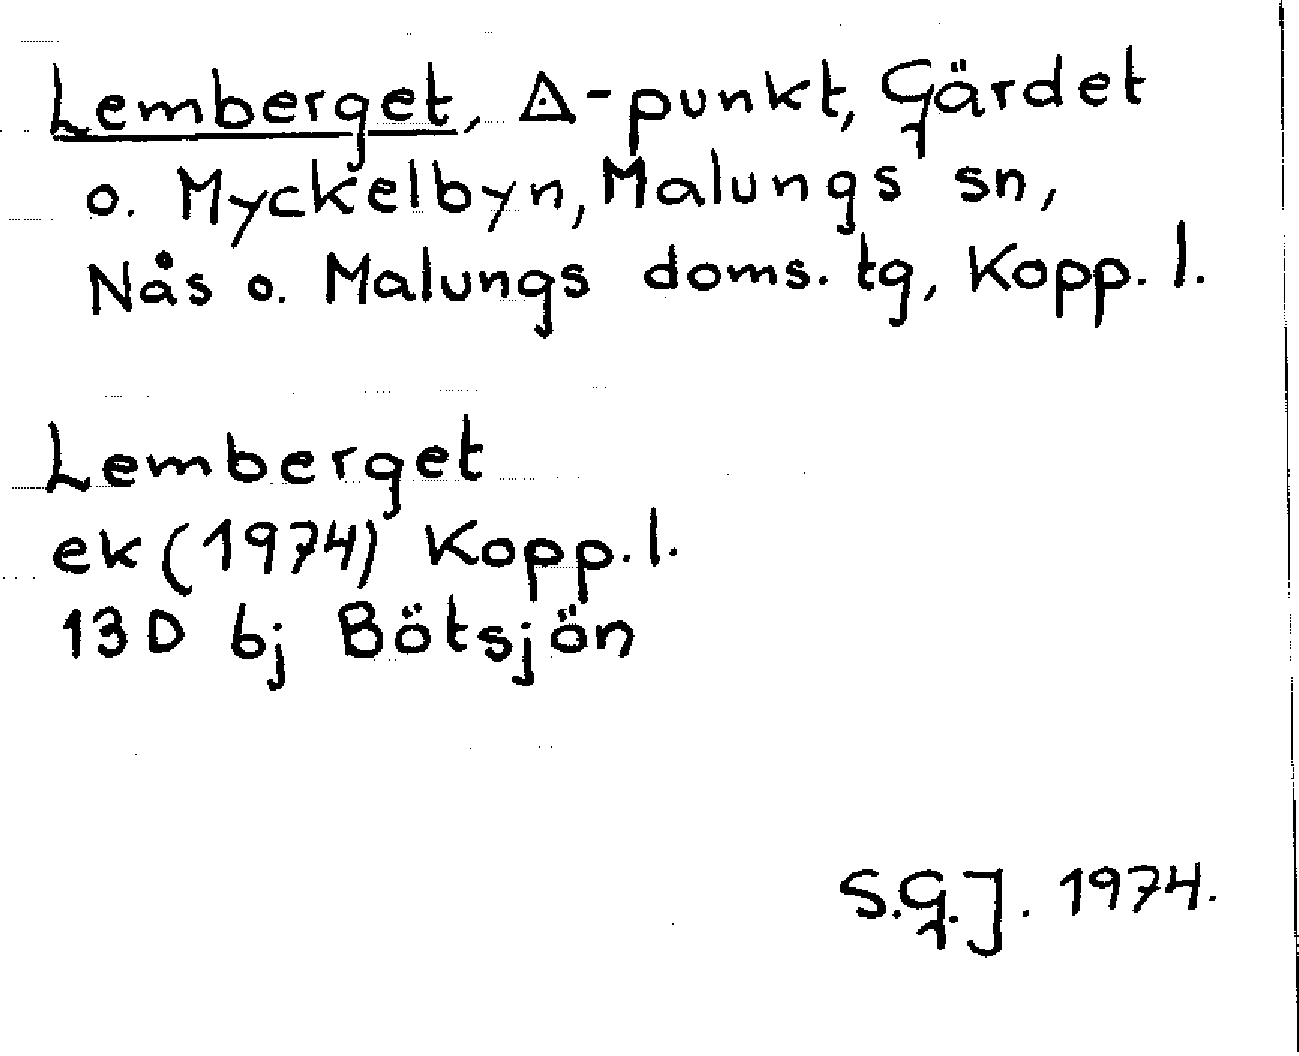 Lemberget, ◬-punkt, Gärdet
o. Myckelbyn, Malungs sn,
Nås o. Malungs doms. tg, Kopp. l.
Lemberget
ek (1974) Kopp. l.
13D bj Bötsjön
S.G.J. 1974.